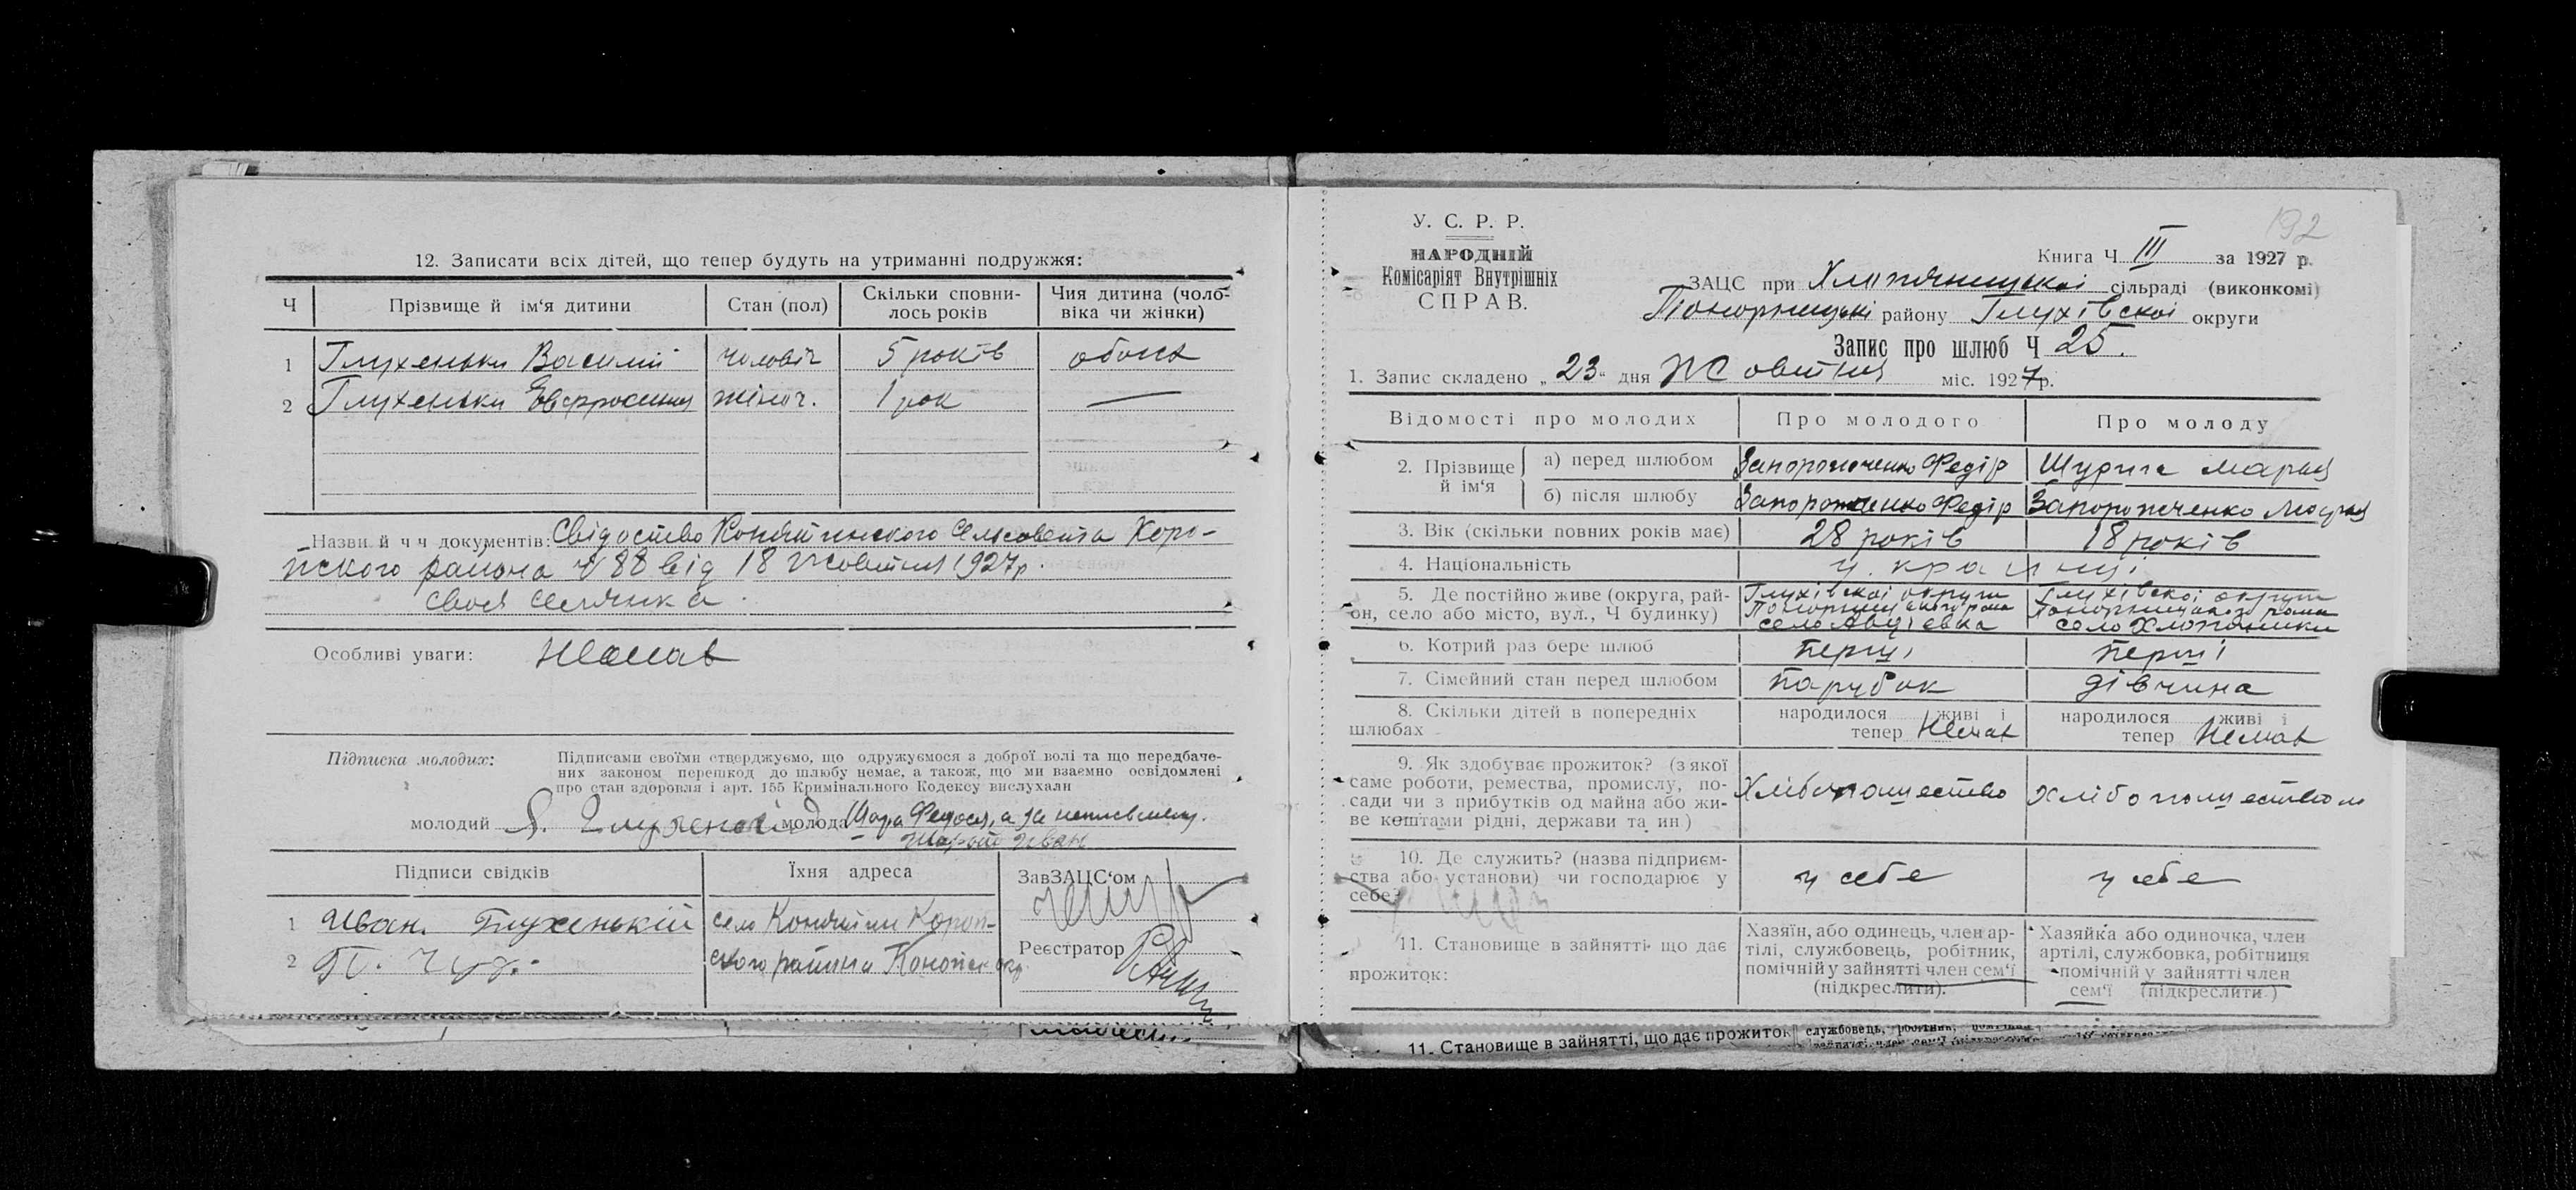 12. Записати всіх дітей, що тепер будуть на утриманні подружжя:
Ч Прізвище й ім‘я дитини Стан (пол) Скільки сповнилось років Чия дитина (чоловіка чи жінки)
1 Глухеньки Василий чоловіч 5 років обоих
2 Глухеньки Евфросиния жіноч. 1 рок —
Назви й ч ч документів: Свідоство Конятинского Сельсовета Коро-
пского района Ч 88 від 18 жовтня 1927 р.
своя селянка.
Особливі уваги: Немає
Підписка молодих: Підписами своїми стверджуємо, що одружуємося з доброї волі та що передбаче-
них законом перешкод до шлюбу немає, а також, що ми взаємно освідомлені
про стан здоровля і арт. 155 Кримінального Кодексу вислухали
молодий молода Шара Федося, а за неписьмену
Иван
Підписи свідків Їхня адреса ЗавЗАЦС‘ом
1 Иван. Глухенькій село Конятин Короп-
2 П. ского района Конотоп окр.
Реєстратор
192
У. С. Р. Р.
НАРОДНІЙ
Комісаріят Внутрішніх
СПРАВ.
Книга Ч III за 1927 р.
ЗАЦС при Хлопяницької сільраді (виконкомі)
Понорницькі району Глухівскоі округи
Запис про шлюб Ч 25.
1. Запис складено „23“ дня Жовтня міс. 1927 р.
Відомості про молодих Про молодого Про молоду
2. Прізвище й ім‘я а) перед шлюбом Запорожченко Федір Мария
б) після шлюбу Запорожченко Федір Запорожченко Мария
3. Вік (скільки повних років має) 28 років 18 років
4. Національність українці
5. Де постійно живе (округа, рай- Глухівскоі округи Глухівскоі округи
он, село або місто, вул., Ч будинку) Понорницького рона Понорницького рона
село Авдіевка село Хлопяники
6. Котрий раз бере шлюб Перші Перші
7. Сімейний стан перед шлюбом Парубок дівчина
8. Скільки дітей в попередніх народилося живі і народилося живі і
шлюбах тепер Немає тепер Немає
9. Як здобуває прожиток? (з якої
саме роботи, ремества, промислу, по-
сади чи з прибутків од майна або жи-
ве коштами рідні, держави та ин)
Хлібопашество хлібопашеством
10. Де служить? (назва підприєм-
ства або установи) чи господарює у
себе?
у себе у себе
11. Становище в зайнятті що дає
прожиток:
Хазяїн, або одинець, член ар-
тілі, службовець, робітник,
помічній у зайнятті член сем‘ї
(підкреслити).
Хазяйка або одиночка, член
артілі, службовка, робітниця
помічній у зайнятті член
сем‘ї (підкреслити)
11. Становище в зайнятті, що дає прожиток службовець, робітник,